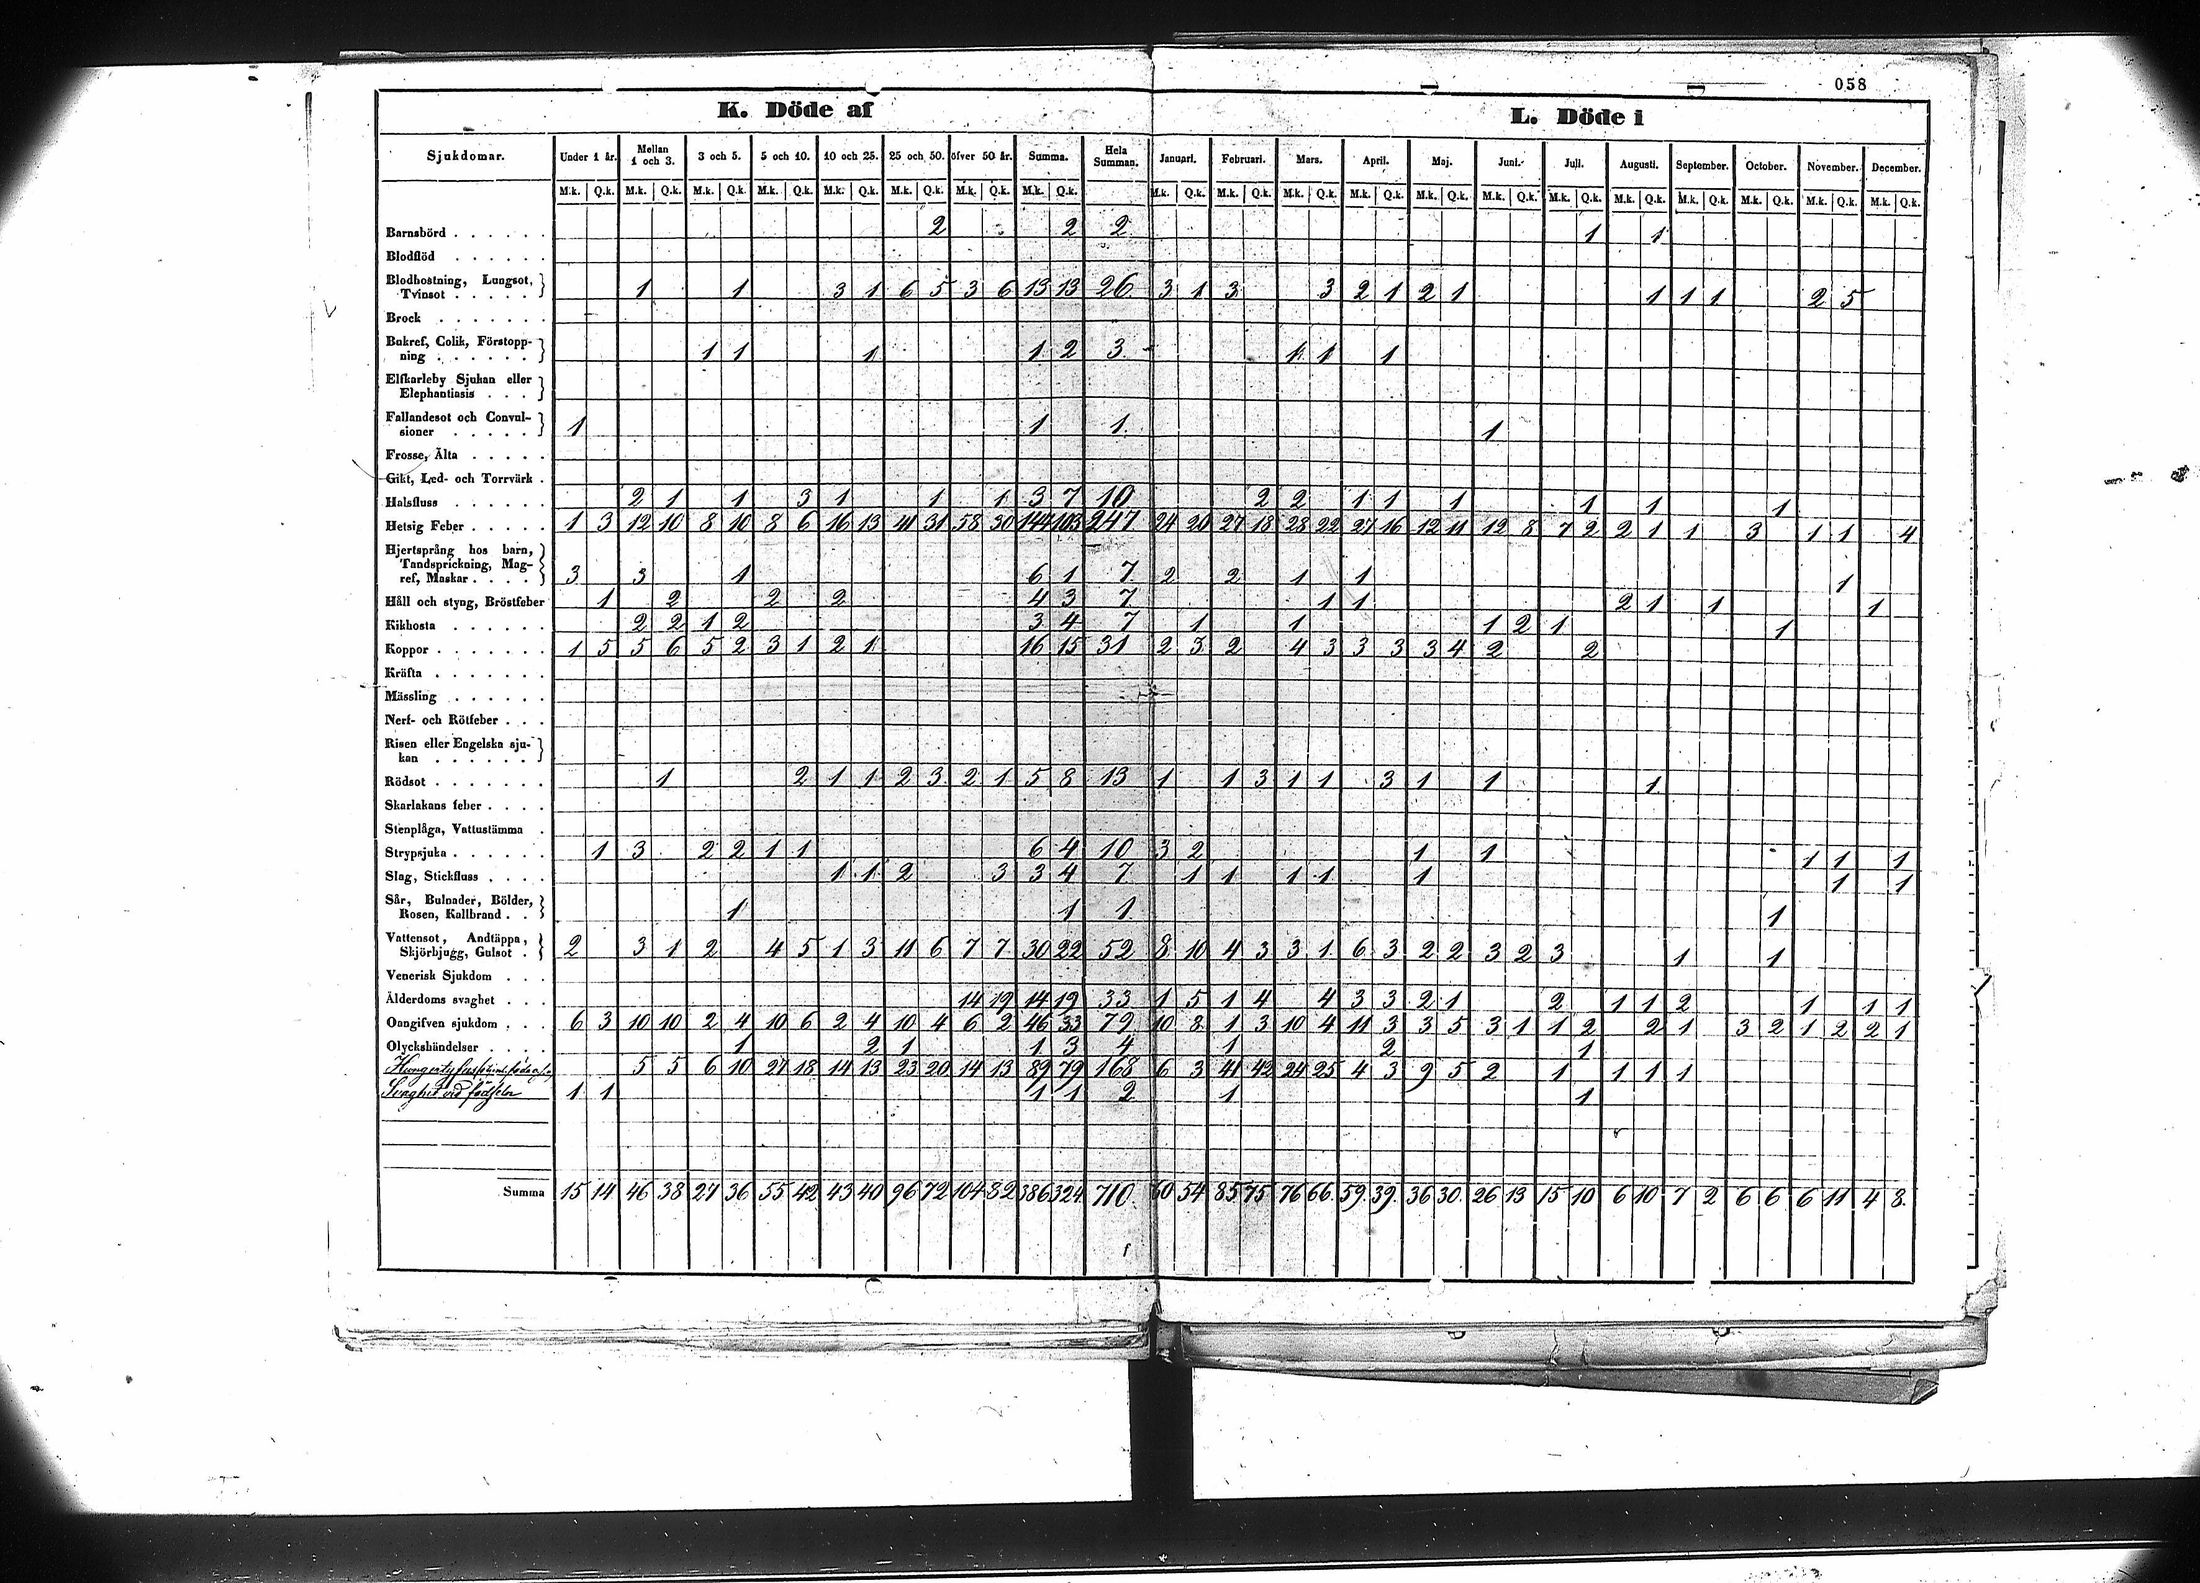 058
K. Döde af
L. Döde i
Sjukdomar. Under 1 år. Mellan 1 och 3. 3 och 5. 5 och 10. 10 och 25. 25 och 50. öfver 50 år. Summa. Hela Summan. Januari. Februari. Mars. April. Maj. Juni. Juli. Augusti. September. October. November. December.
M.k. Q.k. M.k. Q.k. M.k. Q.k. M.k. Q.k. M.k. Q.k. M.k. Q.k. M.k. Q.k. M.k. Q.k. M.k. Q.k. M.k. Q.k. M.k. Q.k. M.k. Q.k. M.k. Q.k. M.k. Q.k. M.k. Q.k. M.k. Q.k. M.k. Q.k. M.k. Q.k. M.k. Q.k. M.k. Q.k.
Barnsbörd . . . . . . 2 2 2 1 1
Blodflöd . . . . . .
Blodhostning, Lungsot,
Tvinsot . . . . . 1 1 3 1 6 5 3 6 13 13 26 3 1 3 3 2 1 2 1 1 1 1 2 5
Brock . . . . . . .
Bukref, Colik, Förstopp-
ning . . . . . . 1 1 1 1 2 3 1 1 1
Elfkarleby Sjukan eller
Elephantiasis . . .
Fallandesot och Convul-
sioner . . . . . 1 1 1 1
Frosse, Älta . . . . .
Gikt, Led- och Torrvärk .
Halsfluss . . . . . . 2 1 1 3 1 1 1 3 7 10 2 2 1 1 1 1 1 1
Hetsig Feber . . . . . 1 3 12 10 8 10 8 6 16 13 41 31 58 30 144 103 247 24 20 27 18 28 22 27 16 12 11 12 8 7 2 2 1 1 3 1 1 4
Hjertsprång hos barn,
Tandsprickning, Mag-
ref, Maskar . . . . 3 3 1 6 1 7 2 2 1 1 1
Håll och styng, Bröstfeber 1 2 2 2 4 3 7 1 1 2 1 1 1
Kikhosta . . . . . . 2 2 1 2 3 4 7 1 1 1 2 1 1
Koppor . . . . . . . 1 5 5 6 5 2 3 1 2 1 16 15 31 2 3 2 4 3 3 3 3 4 2 2
Kräfta . . . . . . .
Mässling . . . . . .
Nerf- och Rötfeber . . .
Risen eller Engelska sju-
kan . . . . . .
Rödsot . . . . . . . 1 2 1 1 2 3 2 1 5 8 13 1 1 3 1 1 3 1 1 1
Skarlakans feber . . . .
Stenplåga, Vattustämma .
Strypsjuka . . . . . . 1 3 2 2 1 1 6 4 10 3 2 1 1 1 1 1
Slag, Stickfluss . . . . 1 1 2 3 3 4 7 1 1 1 1 1 1 1
Sår, Bulnader, Bölder,
Rosen, Kallbrand . . 1 1 1 1
Vattensot, Andtäppa,
Skjörbjugg, Gulsot . 2 3 1 2 4 5 1 3 11 6 7 7 30 22 52 8 10 4 3 3 1 6 3 2 2 3 2 3 1 1
Venerisk Sjukdom . . .
Ålderdoms svaghet . . . 14 19 14 19 33 1 5 1 4 4 3 3 2 1 2 1 1 2 1 1 1
Oangifven sjukdom . . . 6 3 10 10 2 4 10 6 2 4 10 4 6 2 46 33 79 10 8 1 3 10 4 11 3 3 5 3 1 1 2 2 1 3 2 1 2 2 1
Olyckshändelser . . . . 1 2 1 1 3 4 1 2 1
5 5 6 10 27 18 14 13 23 20 14 13 89 79 168 6 3 41 42 24 25 4 3 9 5 2 1 1 1 1
Svaghet vid födseln 1 1 1 1 2 1 1
Summa 15 14 46 38 27 36 55 42 43 40 96 72 104 82 386 324 710 60 54 85 75 76 66 59 39 36 30 26 13 15 10 6 10 7 2 6 6 6 11 4 8